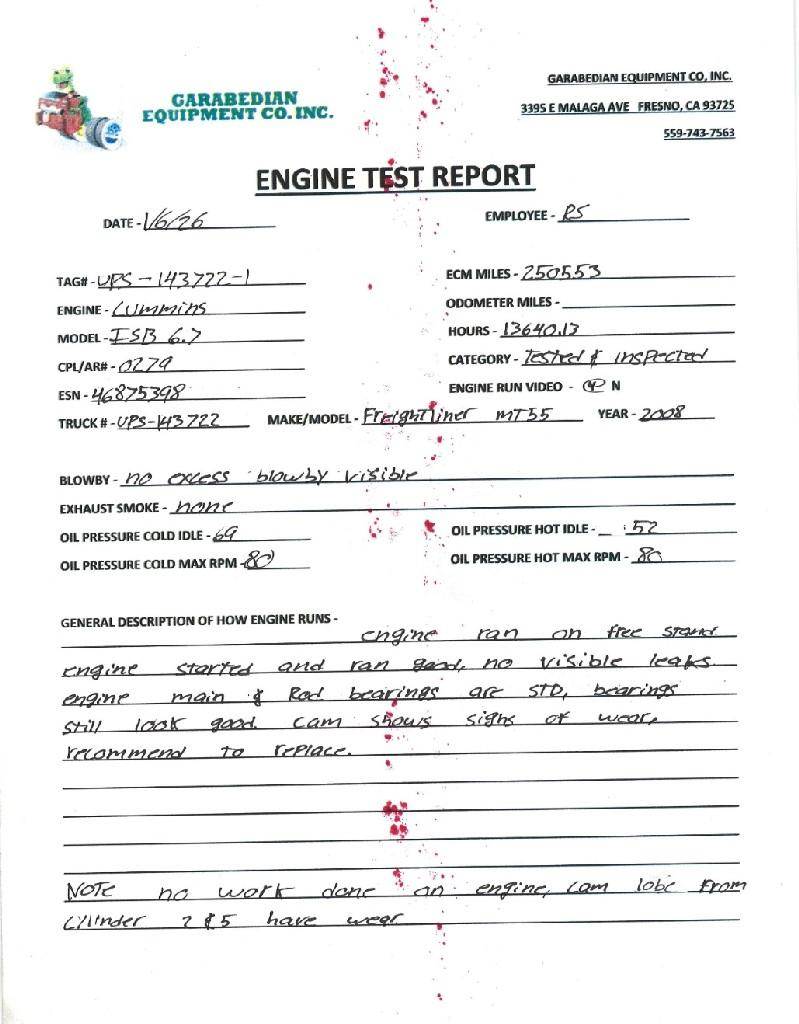 GARABEDIAN
EQUIPMENT CO. INC.
GARABEDIAN EQUIPMENT CO, INC.
3395 E MALAGA AVE FRESNO, CA 93725
559-743-7563
ENGINE TEST REPORT
DATE - 1/6/26
EMPLOYEE - RS
TAG# - UPS-143722-1
ECM MILES - 250553
ENGINE - Cummins
ODOMETER MILES -
MODEL - ISB 6.7
HOURS - 13640.13
CPL/AR# - 0279
CATEGORY - Tested & inspected
ESN - 46875398
ENGINE RUN VIDEO - Y N
TRUCK # - UPS-143722 MAKE/MODEL - Freightliner MT55 YEAR - 2008
BLOWBY - no excess blowby visible
EXHAUST SMOKE - none
OIL PRESSURE COLD IDLE - 69
OIL PRESSURE HOT IDLE - 52
OIL PRESSURE COLD MAX RPM - 80
OIL PRESSURE HOT MAX RPM - 80
GENERAL DESCRIPTION OF HOW ENGINE RUNS -
engine ran on free stand
engine started and ran good, no visible leaks.
engine main & Rod bearings are STD, bearings
still look good. cam shows signs of wear,
recommend to replace.
NOTE no work done on engine, cam lobe from
cylinder 2 & 5 have wear